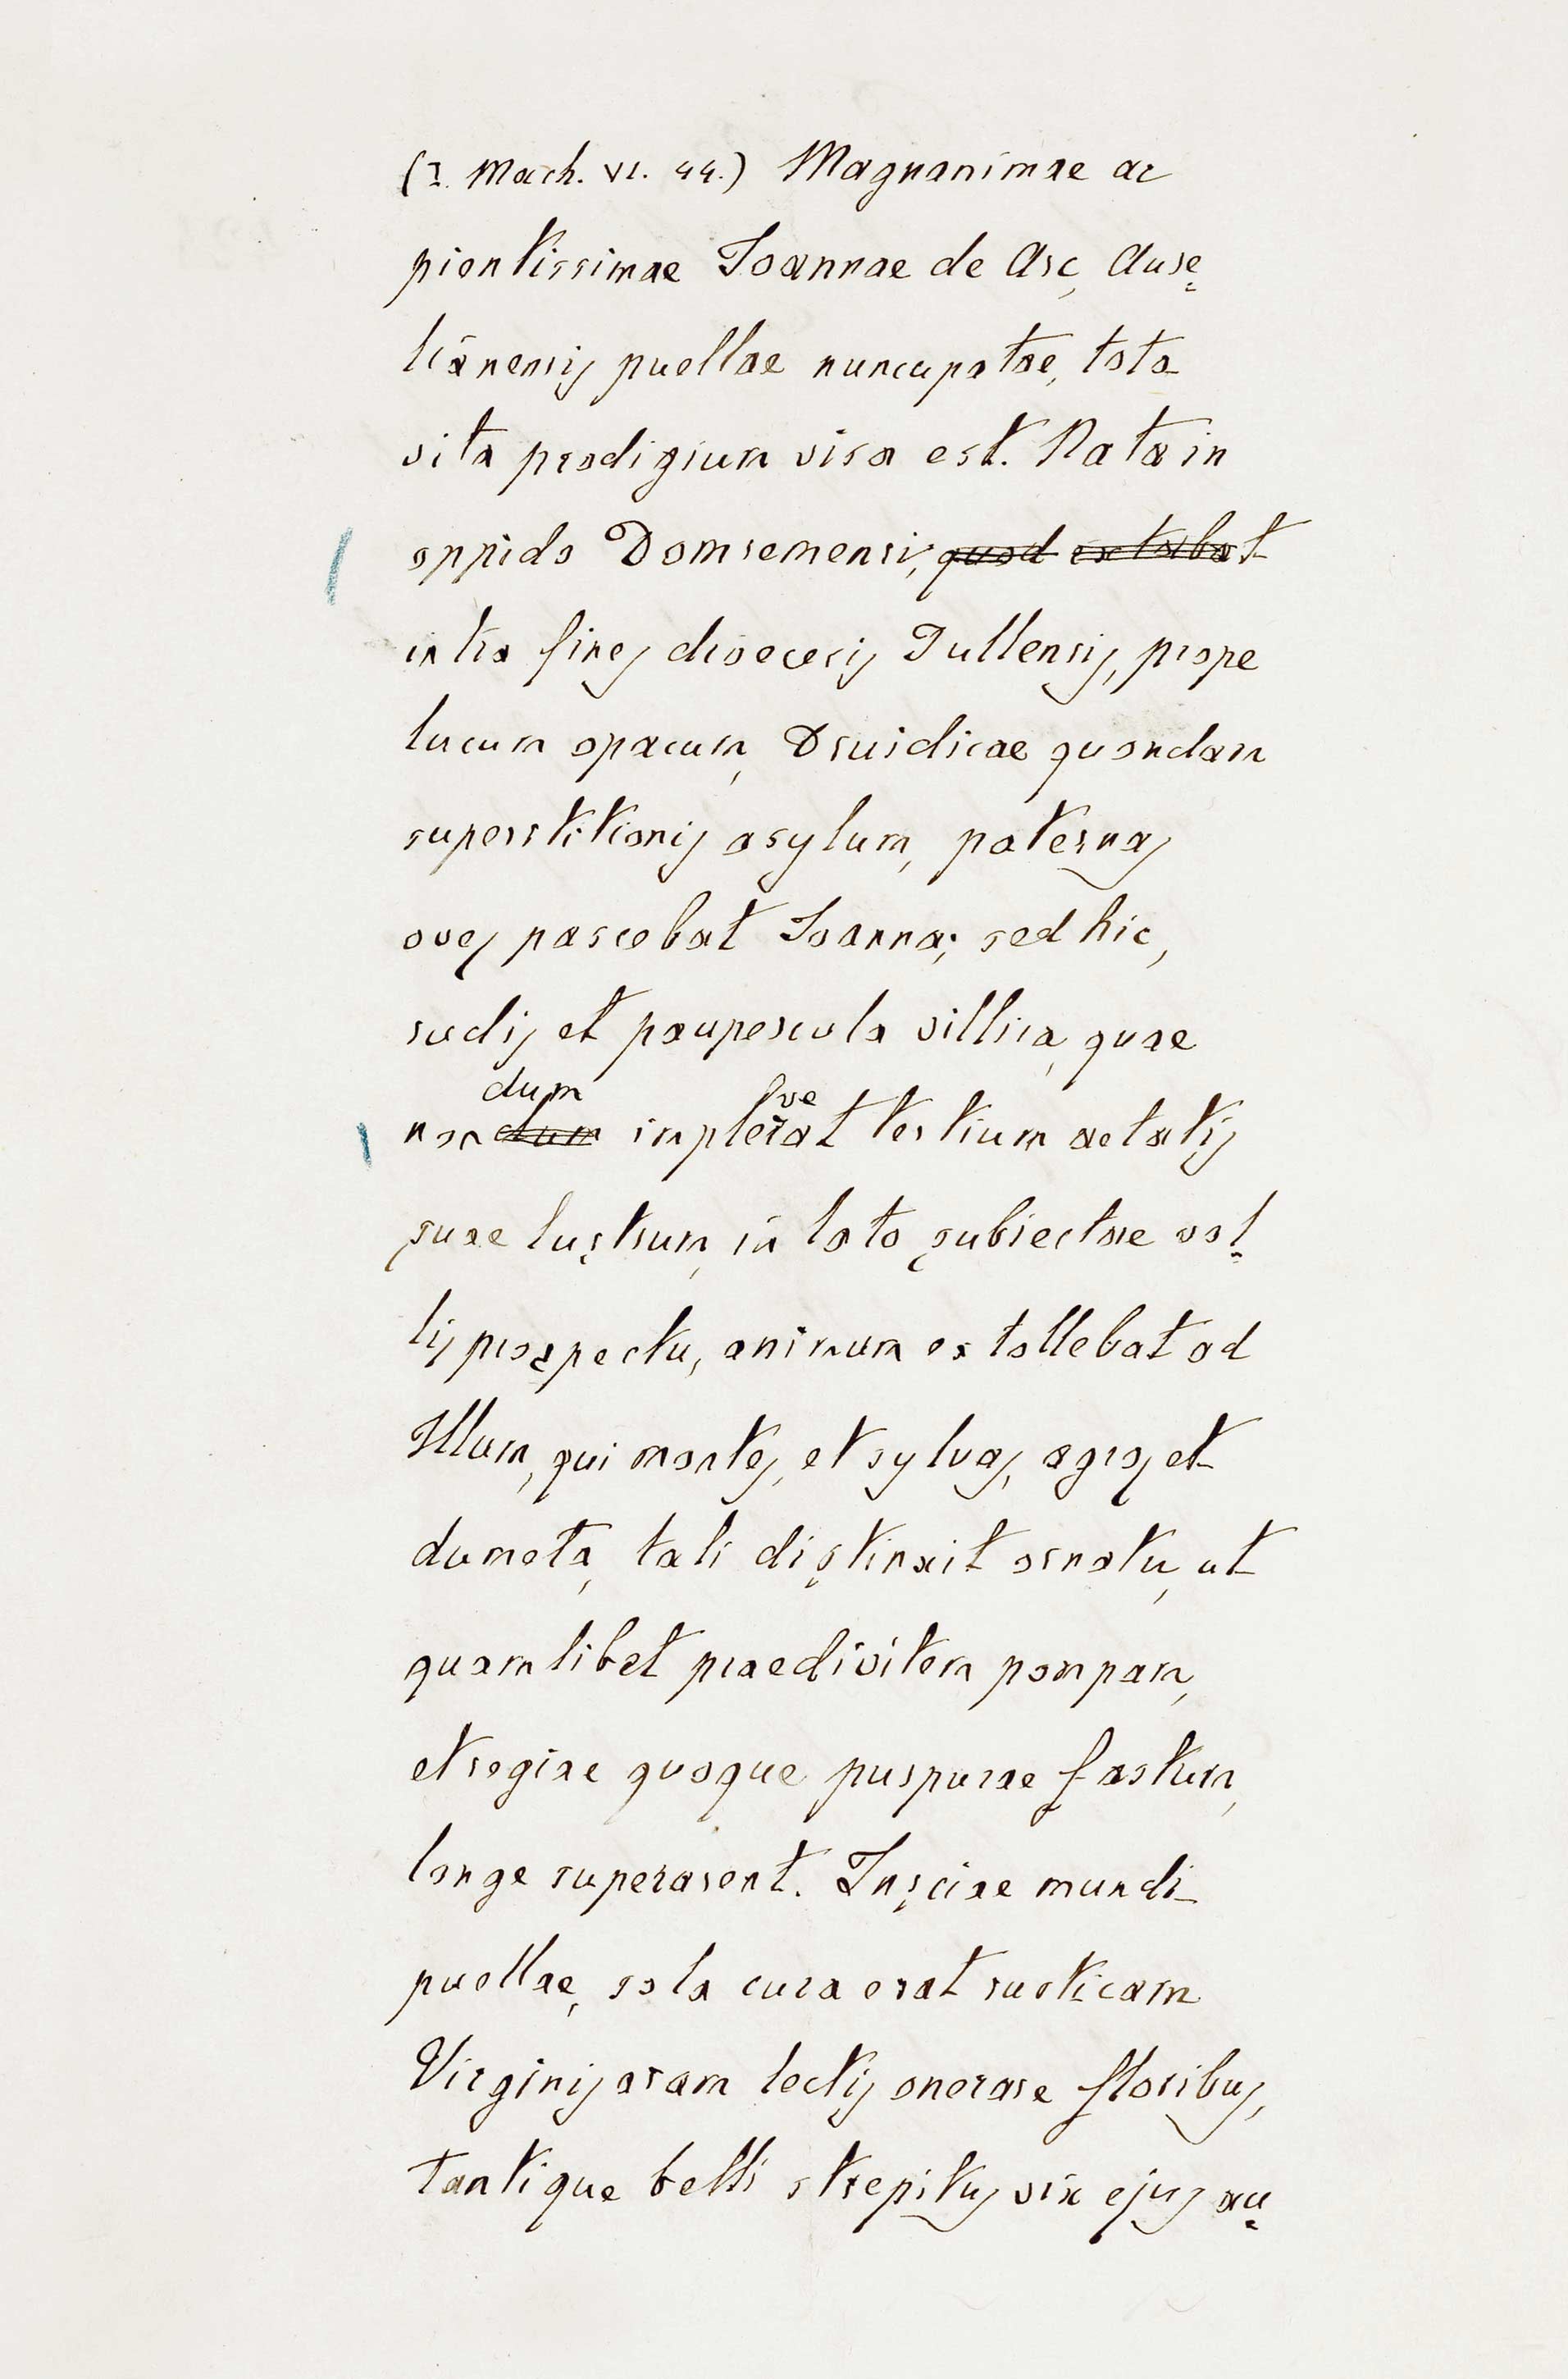 (I. Mach. VI. 44.) Magnanimae ac
pientissimae Joannae de Arc, Aure=
lianensis puellae nuncupatae, tota
vita prodigium visa est. Nata in
oppido Domremensi, quod extabat
intra fines dioecesis Tullensis, prope
lucum opacum, Druidicae quondam
superstitionis asylum, paternas
oves pascebat Joanna; sed hic,
rudis et paupercula villica, quae
dum ve
nondum implerat tertium aetatis
suae lustrum, in lato subiectae val=
lis prospectu, animum extollebat ad
Illum, qui montes, et sylvas, agros et
dumeta, tali distinxit ornatu, ut
quamlibet praedivitem pompam,
et regiae quoque purpurae fastum,
longe superarent. Insciae mundi
puellae, sola cura erat rusticam
Virginis aram lectis onerare floribus,
tantique belli strepitus vix ejus au=